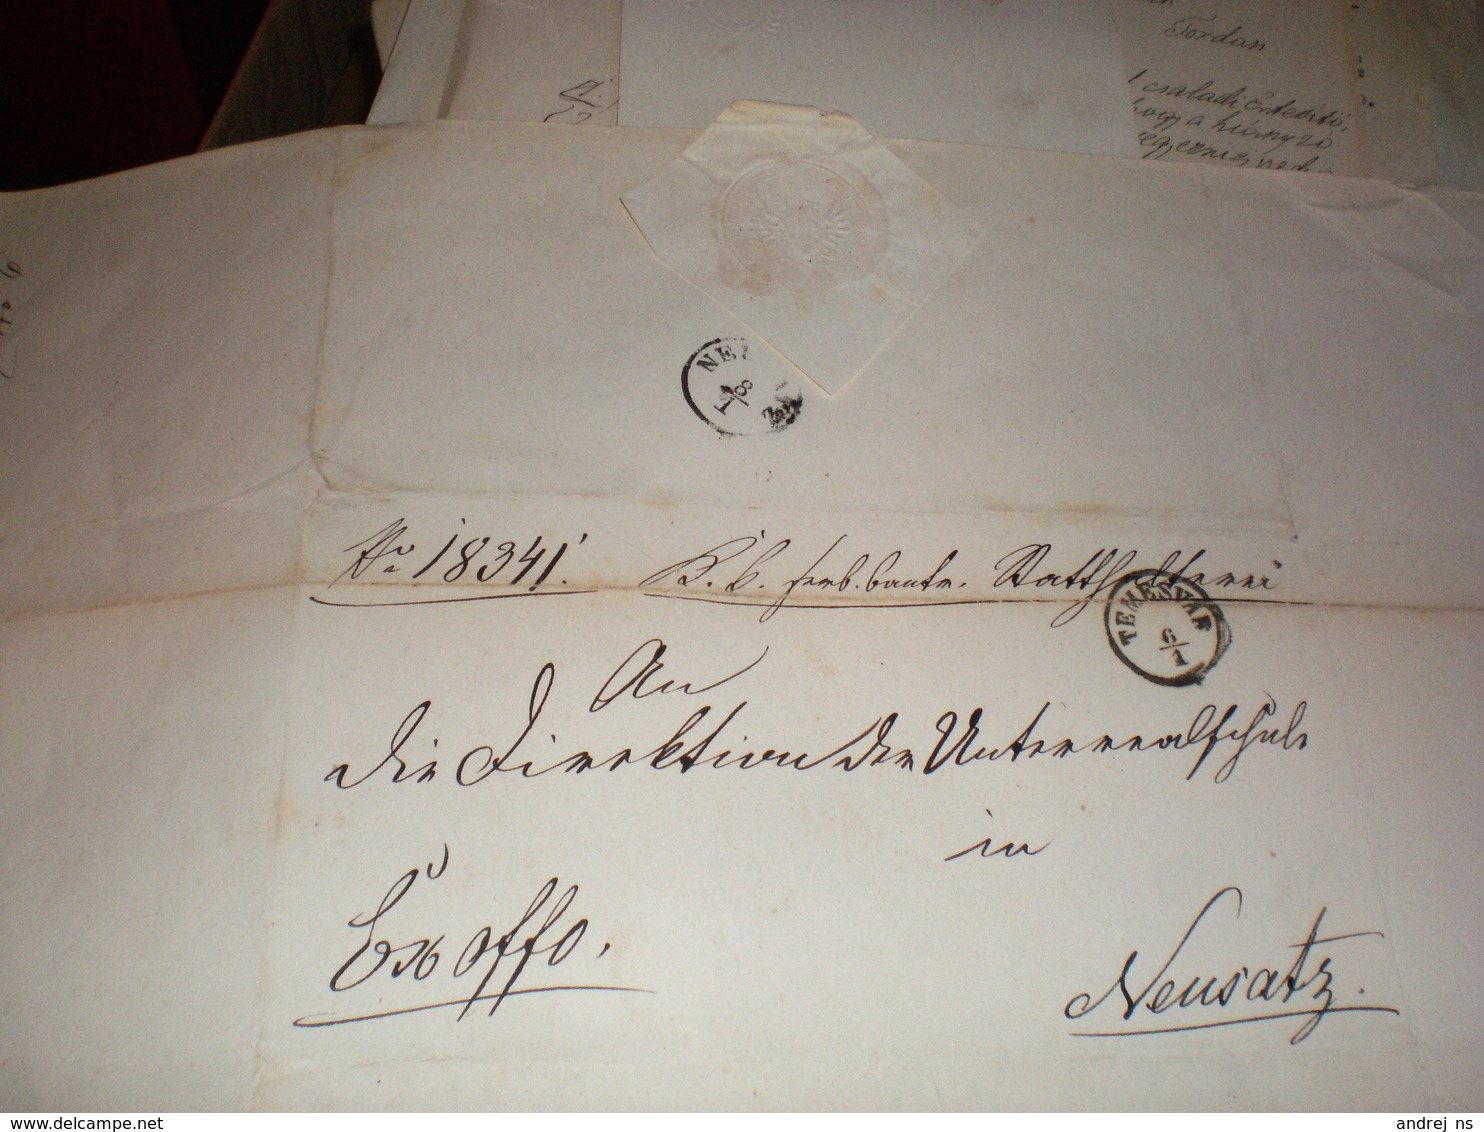 Tordan
családi Értesitő,
hogy a hiányzó
NEU
8/1
No 18341. K. k. serb. banat. Statthalterei
TEMESVAR
6/1
An
die Direktion der Unterrealschule
in
Ex offo.
Neusatz.
andrej_ns
delcampe.net